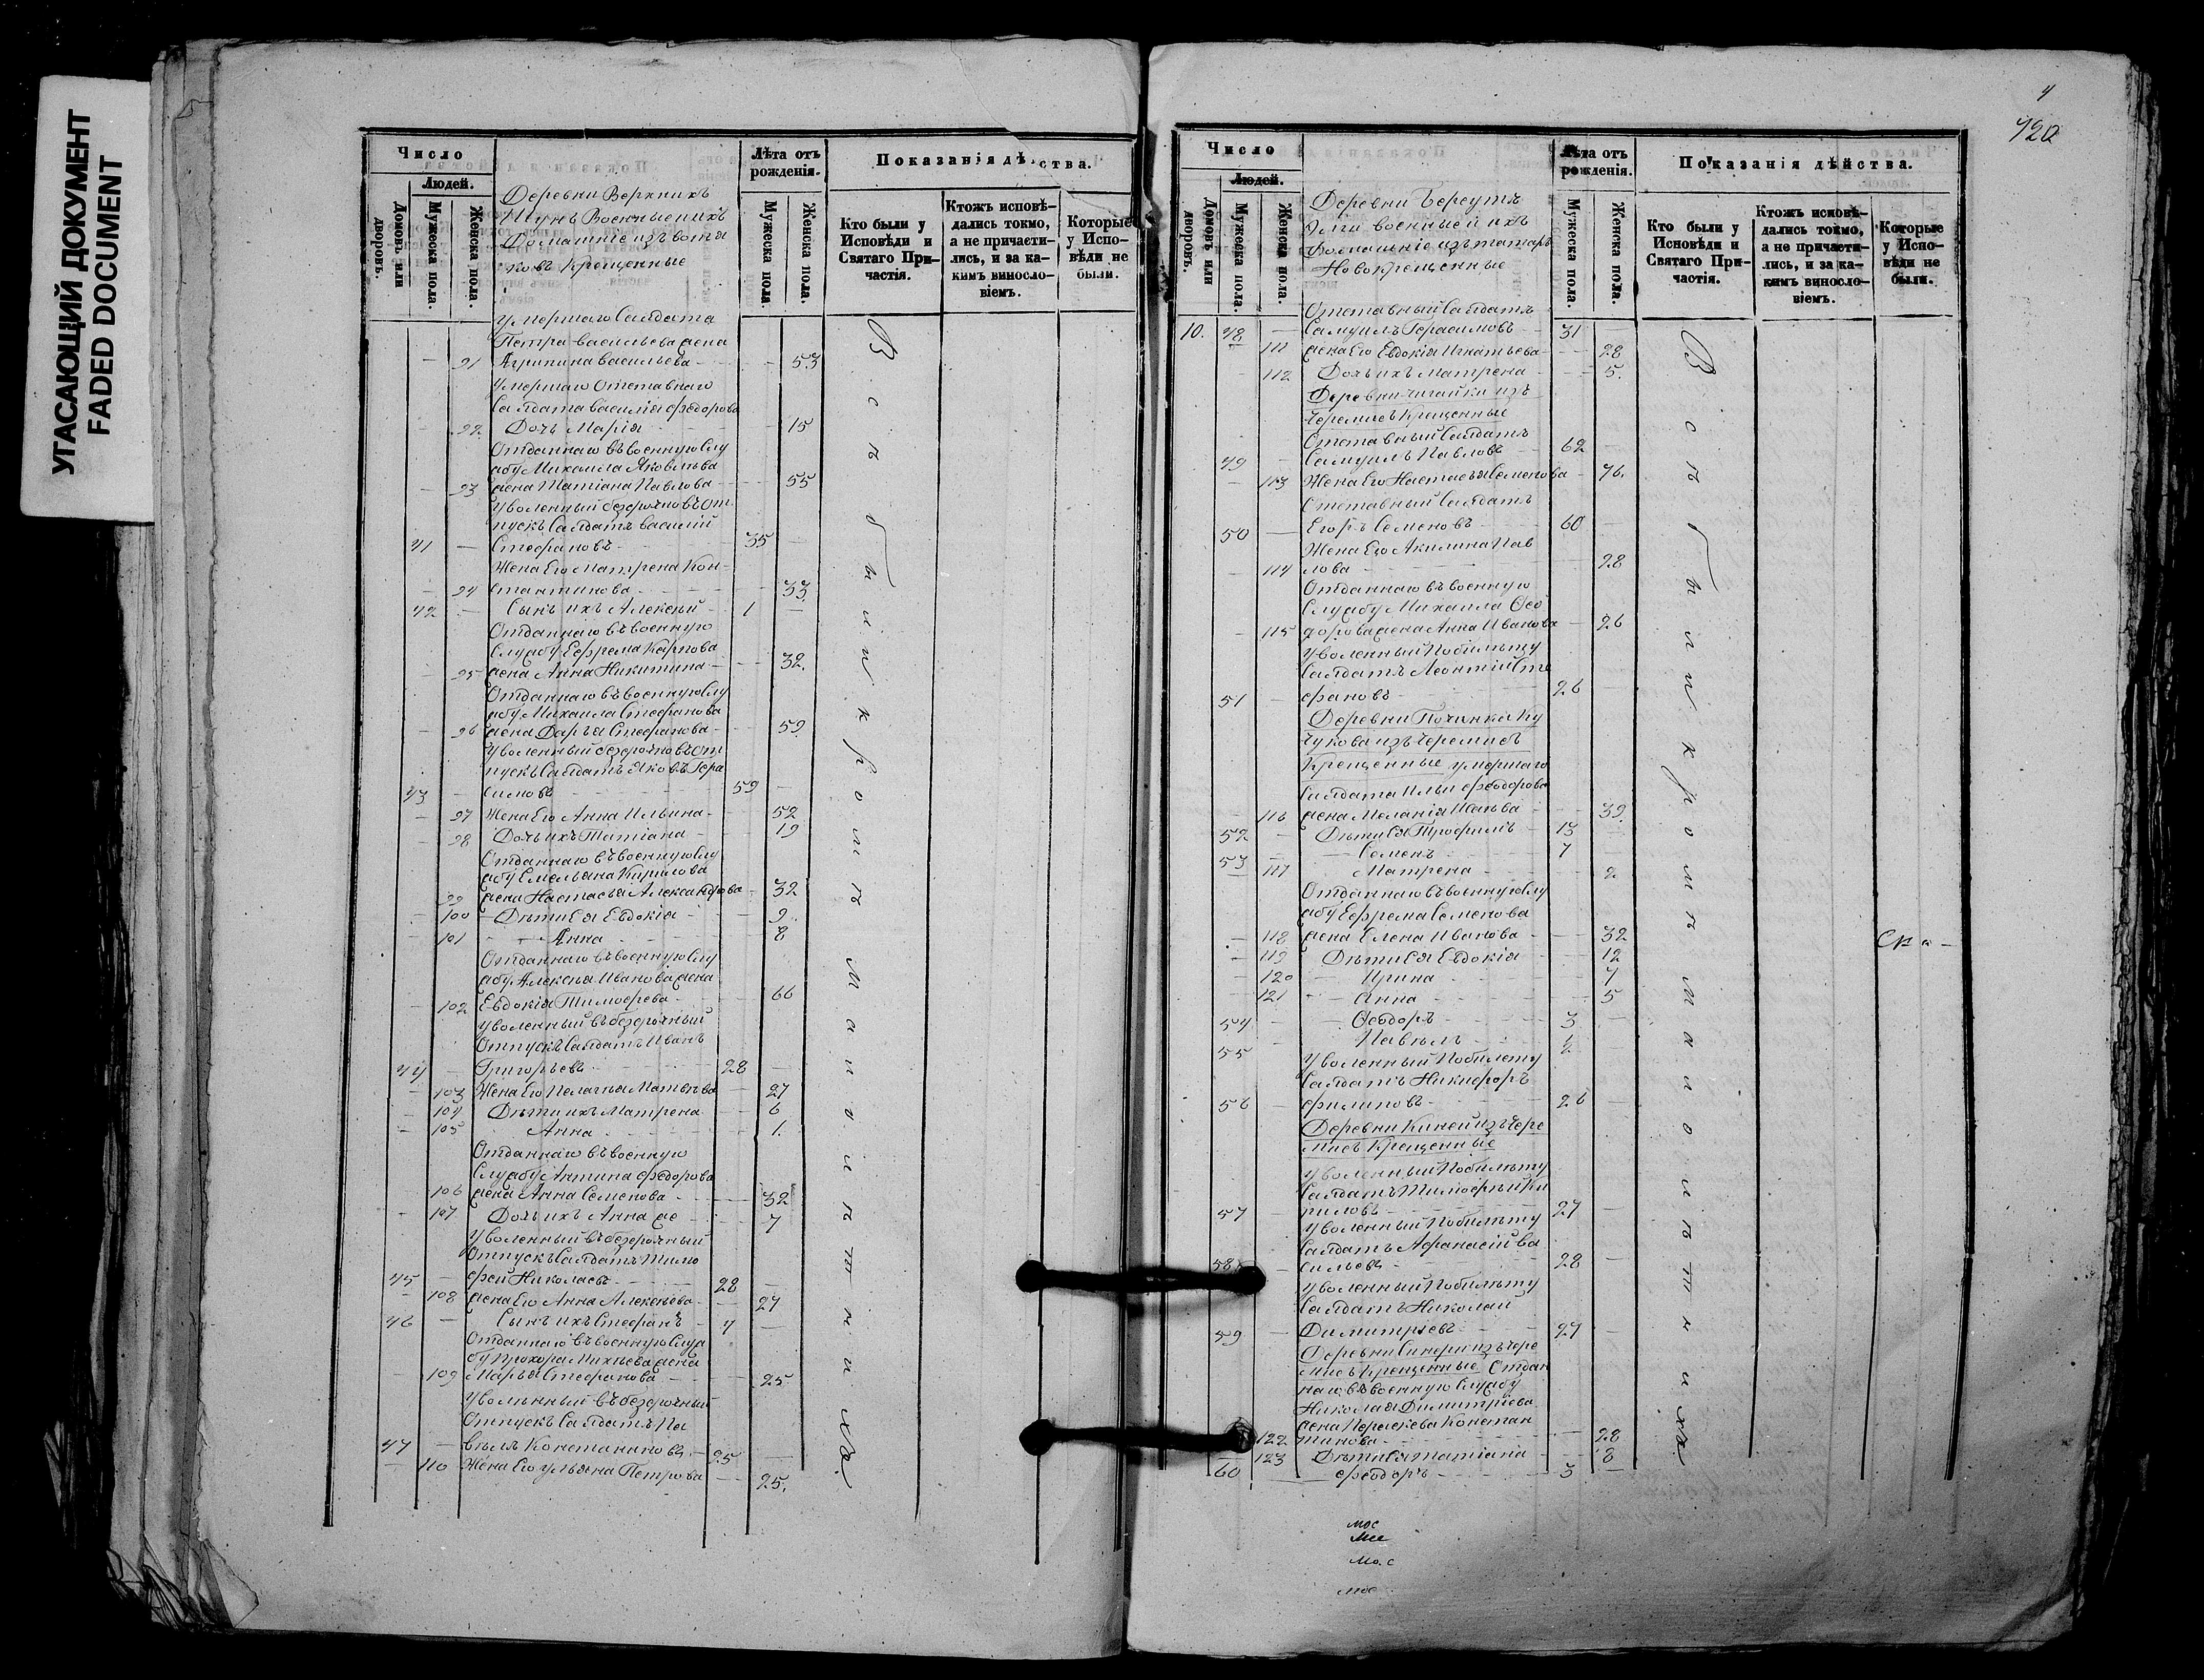 УГАСАЮЩИЙ ДОКУМЕНТ
FADED DOCUMENT
Число
Людей.
Домовъ или дворовъ.
Мужеска пола.
Женска пола.
Деревни Верхнихъ
Шунь Военные ихъ
Домашніе изъ вотя
ковъ Крещенные
Лѣта отъ рожденія.
Мужеска пола.
Женска пола.
Показанія дѣ ства.
Кто были у Исповѣди и Святаго При-частія.
Ктожъ исповѣ-дались токмо, а не причасти-лись, и за ка-кимъ винословіемъ.
Которые у Испо-вѣди не были.
умершаго Салдата
Петра Васильева жена
91 Агрипина Васильева 53
умершаго Отставнаго
Салдата Василія Федорова
92 Дочь Марія 15
Отданнаго въ военную Слу
жбу Михаила Яковлева
93 жена Татіана Павлова 55
Уволенный безсрочно въ От
пускъ Салдатъ Василій
41 Стефановъ 35
Жена Его Матрена Кон-
94 стантинова 33
42 Сынъ ихъ Алексѣй 1
Отданнаго въ военную
Службу Ефрема Карпова
95 жена Анна Никитина 32
Отданнаго въ военную Слу
жбу Михаила Стефанова
96 жена Дарья Стефанова 59
Уволенный безсрочно въ От
пускъ Салдатъ Яковъ Гера
43 симовъ 59
97 Жена Его Анна Ильина 52
98 Дочь ихъ Татіана 19
Отданнаго въ военную Слу
жбу Емельяна Кирилова
99 жена Настасья Александрова 32
100 Дѣти Ея Евдокія 9
101 Анна 8
Отданнаго въ военную Слу
жбу Алексѣя Иванова жена
102 Евдокія Тимофеева 66
Уволенный въ безсрочный
Отпускъ Салдатъ Иванъ
44 Григорьевъ 28
103 Жена Его Пелагѣя Матвѣева 27
104 Дѣти ихъ Матрена 6
105 Анна 1.
Отданнаго въ военную
Службу Антипа Федорова
106 жена Анна Семенова 32
107 Дочь ихъ Анна же 7
Уволенный въ безсрочный
Отпускъ Салдатъ Тимо
45 фей Николаевъ 28
108 жена Его Анна Алексѣева 27
46 Сынъ ихъ Стефанъ 4
Отданнаго въ военную Служ
бу Прохора Михѣева жена
109 Марья Стефанова 25
Уволенный въ безсрочный
Отпускъ Салдатъ Па
47 велъ Константиновъ 25
110 Жена Его Ульяна Петрова 25.
420
Число
Людей.
Домовъ или дворовъ.
Мужеска пола.
Женска пола.
Деревни
военные и ихъ
Домашніе изъ татаръ
Новокрещенные
Лѣта отъ рожденія.
Мужеска пола.
Женска пола.
Показанія дѣйства.
Кто были у Исповѣди и Святаго При-частія.
Ктожъ исповѣ-дались токмо, а не причасти-лись, и за ка-кимъ винословіемъ.
Которые у Испо-вѣди не были.
Отставный Салдатъ
10. 48 Самуилъ Герасимовъ 31
111 жена Его Евдокія Игнатьева 28
112 Дочь ихъ Матрена 5.
Деревни изъ
Черемисъ Крещенные
Отставный Салдатъ
49 Самуилъ Павловъ 62
113 Жена Его Настасья Семенова 46.
Отставный Салдатъ
50 Егоръ Семеновъ 60
Жена Его Акилина Пав
114 лова 28
Отданнаго въ военную
Службу Михаила Ѳео
115 дорова жена Анна Иванова 26
Уволенный по билету
Салдатъ Леонтій Сте
51 фановъ 26
Деревни Починка Ку
чукова изъ Черемисъ
Крещенные умершаго
Салдата Ильи Феодорова
116 жена Меланія 39.
52 Дѣти Ея Трофимъ 13
53 Семенъ 7
117 Матрена 2
Отданнаго въ военную Слу
жбу Ефрема Семенова
118 жена Елена Иванова 32
119 Дѣти Ея Евдокія 12
120 Ирина 7
121 Анна 5
54 Ѳеодоръ 3
55 Павелъ ½
Уволенный по билету
Салдатъ Никифоръ
56 Филиповъ 26
Деревни изъ Чере
мисъ Крещенные
Уволенный по билѣту
Салдатъ Тимофѣй Ки
57 риловъ 27
Уволенный по билѣту
Салдатъ Афанасій Ва
58 сильевъ 28
Уволенный по билѣту
Салдатъ Николай
59 Димитріевъ 27
Деревни изъ Чере
мисъ Крещенные Отдан
наго въ военную Службу
Николая Димитріева
жена Парасковья Констан
122 тинова 28
123 Дѣти Ея Татіана 8
60 Феодоръ 3